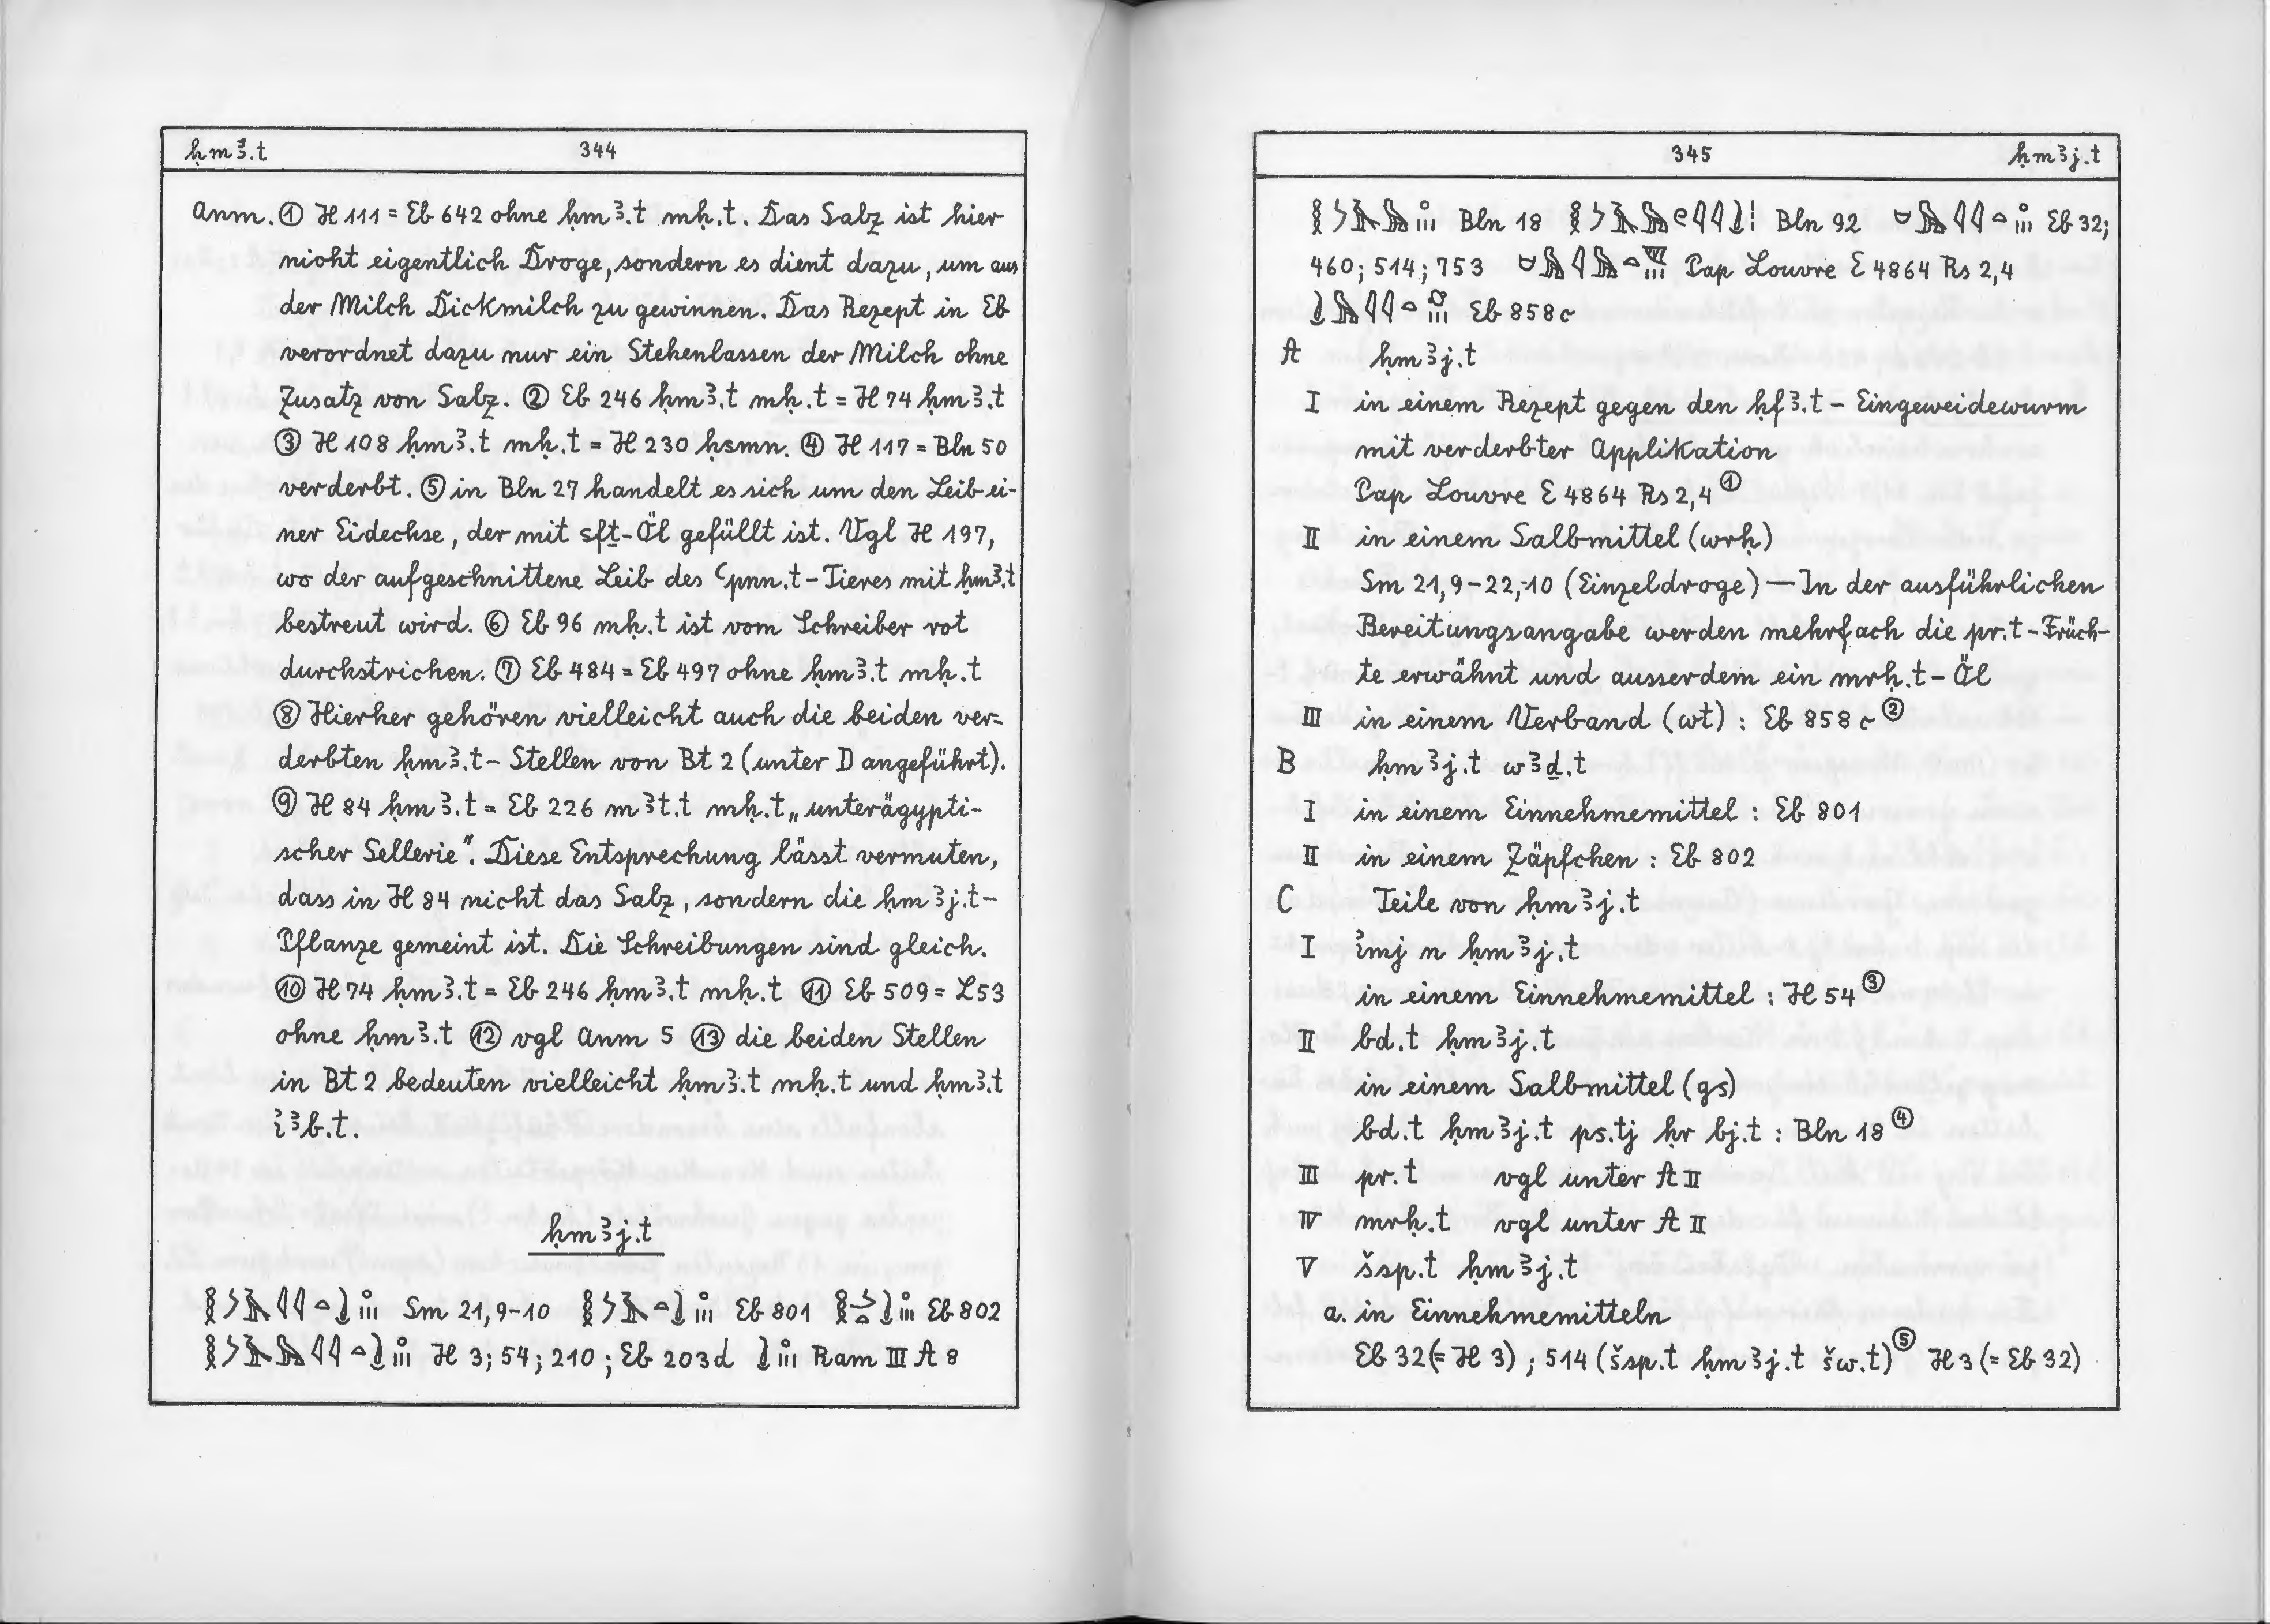 ḥmꜣ.t 344
Anm. ① H 111 = Eb 642 ohne ḥmꜣ.t mḥ.t. Das Salz ist hier
nicht eigentlich Droge, sondern es dient dazu, um aus
der Milch Dickmilch zu gewinnen. Das Rezept in Eb
verordnet dazu nur ein Stehenlassen der Milch ohne
Zusatz von Salz. ② Eb 246 ḥmꜣ.t mḥ.t = H 74 ḥmꜣ.t
③ H 108 ḥmꜣ.t mḥ.t = H 230 ḥsmn. ④ H 117 = Bln 50
verderbt. ⑤ in Bln 27 handelt es sich um den Leib ei-
ner Eidechse, der mit sfṯ-Öl gefüllt ist. Vgl H 197,
wo der aufgeschnittene Leib des ꜥpnn.t-Tieres mit ḥmꜣ.t
bestreut wird. ⑥ Eb 96 mḥ.t ist vom Schreiber rot
durchstrichen. ⑦ Eb 484 = Eb 497 ohne ḥmꜣ.t mḥ.t
⑧ Hierher gehören vielleicht auch die beiden ver-
derbten ḥmꜣ.t-Stellen von Bt 2 (unter D angeführt).
⑨ H 84 ḥmꜣ.t = Eb 226 mꜣt.t mḥ.t „unterägypti-
scher Sellerie". Diese Entsprechung lässt vermuten,
dass in H 84 nicht das Salz, sondern die ḥmꜣj.t-
Pflanze gemeint ist. Die Schreibungen sind gleich.
⑩ H 74 ḥmꜣ.t = Eb 246 ḥmꜣ.t mḥ.t ⑪ Eb 509 = L 53
ohne ḥmꜣ.t ⑫ vgl Anm 5 ⑬ die beiden Stellen
in Bt 2 bedeuten vielleicht ḥmꜣ.t mḥ.t und ḥmꜣ.t
ꞽꜣb.t.
ḥmꜣj.t
Sm 21,9-10 Eb 801 Eb 802
H 3; 54; 210; Eb 203d Ram III A 8
345 ḥmꜣj.t
Bln 18 Bln 92 Eb 32;
460; 514; 753 Pap Louvre E 4864 Rs 2,4
Eb 858c
A ḥmꜣj.t
I in einem Rezept gegen den ḥfꜣ.t - Eingeweidewurm
mit verderbter Applikation
Pap Louvre E 4864 Rs 2,4 ①
II in einem Salbmittel (wrḥ)
Sm 21,9-22,10 (Einzeldroge) — In der ausführlichen
Bereitungsangabe werden mehrfach die pr.t-Früch-
te erwähnt und ausserdem ein mrḥ.t-Öl
III in einem Verband (wt) : Eb 858c ②
B ḥmꜣj.t wꜣḏ.t
I in einem Einnehmemittel : Eb 801
II in einem Zäpfchen : Eb 802
C Teile von ḥmꜣj.t
I ꞽmj n ḥmꜣj.t
in einem Einnehmemittel : H 54 ③
II bd.t ḥmꜣj.t
in einem Salbmittel (gs)
bd.t ḥmꜣj.t ps.tj ḥr bj.t : Bln 18 ④
III pr.t vgl unter A II
IV mrḥ.t vgl unter A II
V šsp.t ḥmꜣj.t
a. in Einnehmemitteln
Eb 32 (= H 3) ; 514 (šsp.t ḥmꜣj.t šw.t) ⑤ H 3 (= Eb 32)